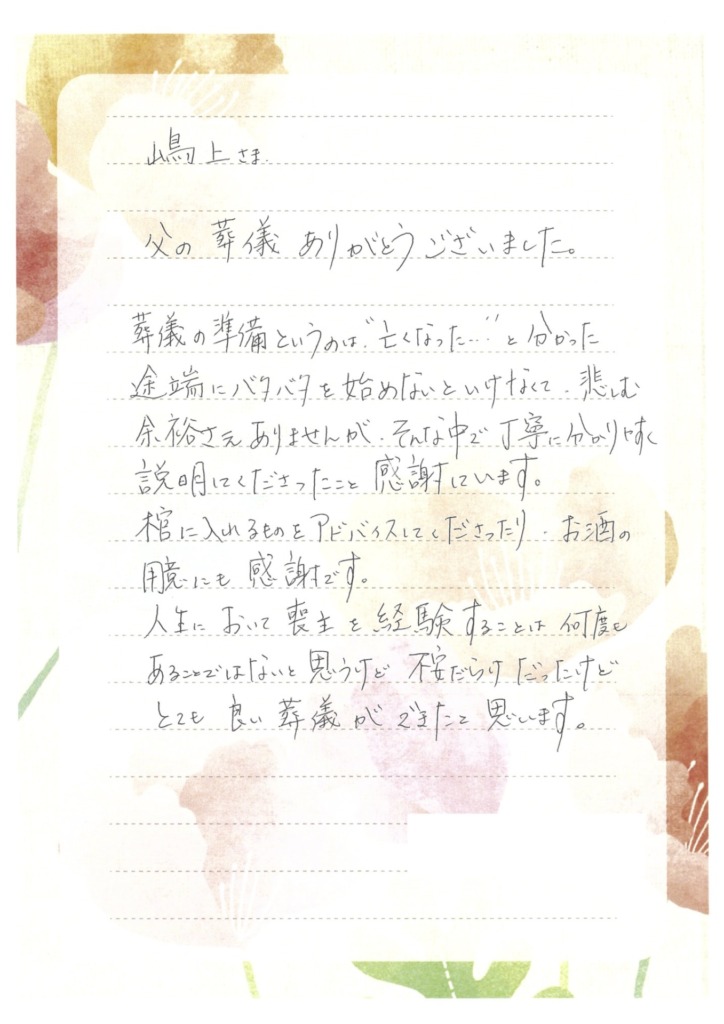 嶋上さま.
父の葬儀 ありがとうございました。
葬儀の準備というのは、"亡くなった…"と分かった
途端にバタバタを始めないといけなくて、悲しむ
余裕さえありませんが、そんな中で丁寧に分かりやすく
説明してくださったこと 感謝しています。
棺に入れるものをアドバイスしてくださったり、お酒の
用意にも 感謝です。
人生において 喪主を経験することは 何度も
あることではないと思うけど 不安だらけだったけど
とても 良い 葬儀が できたと 思います。